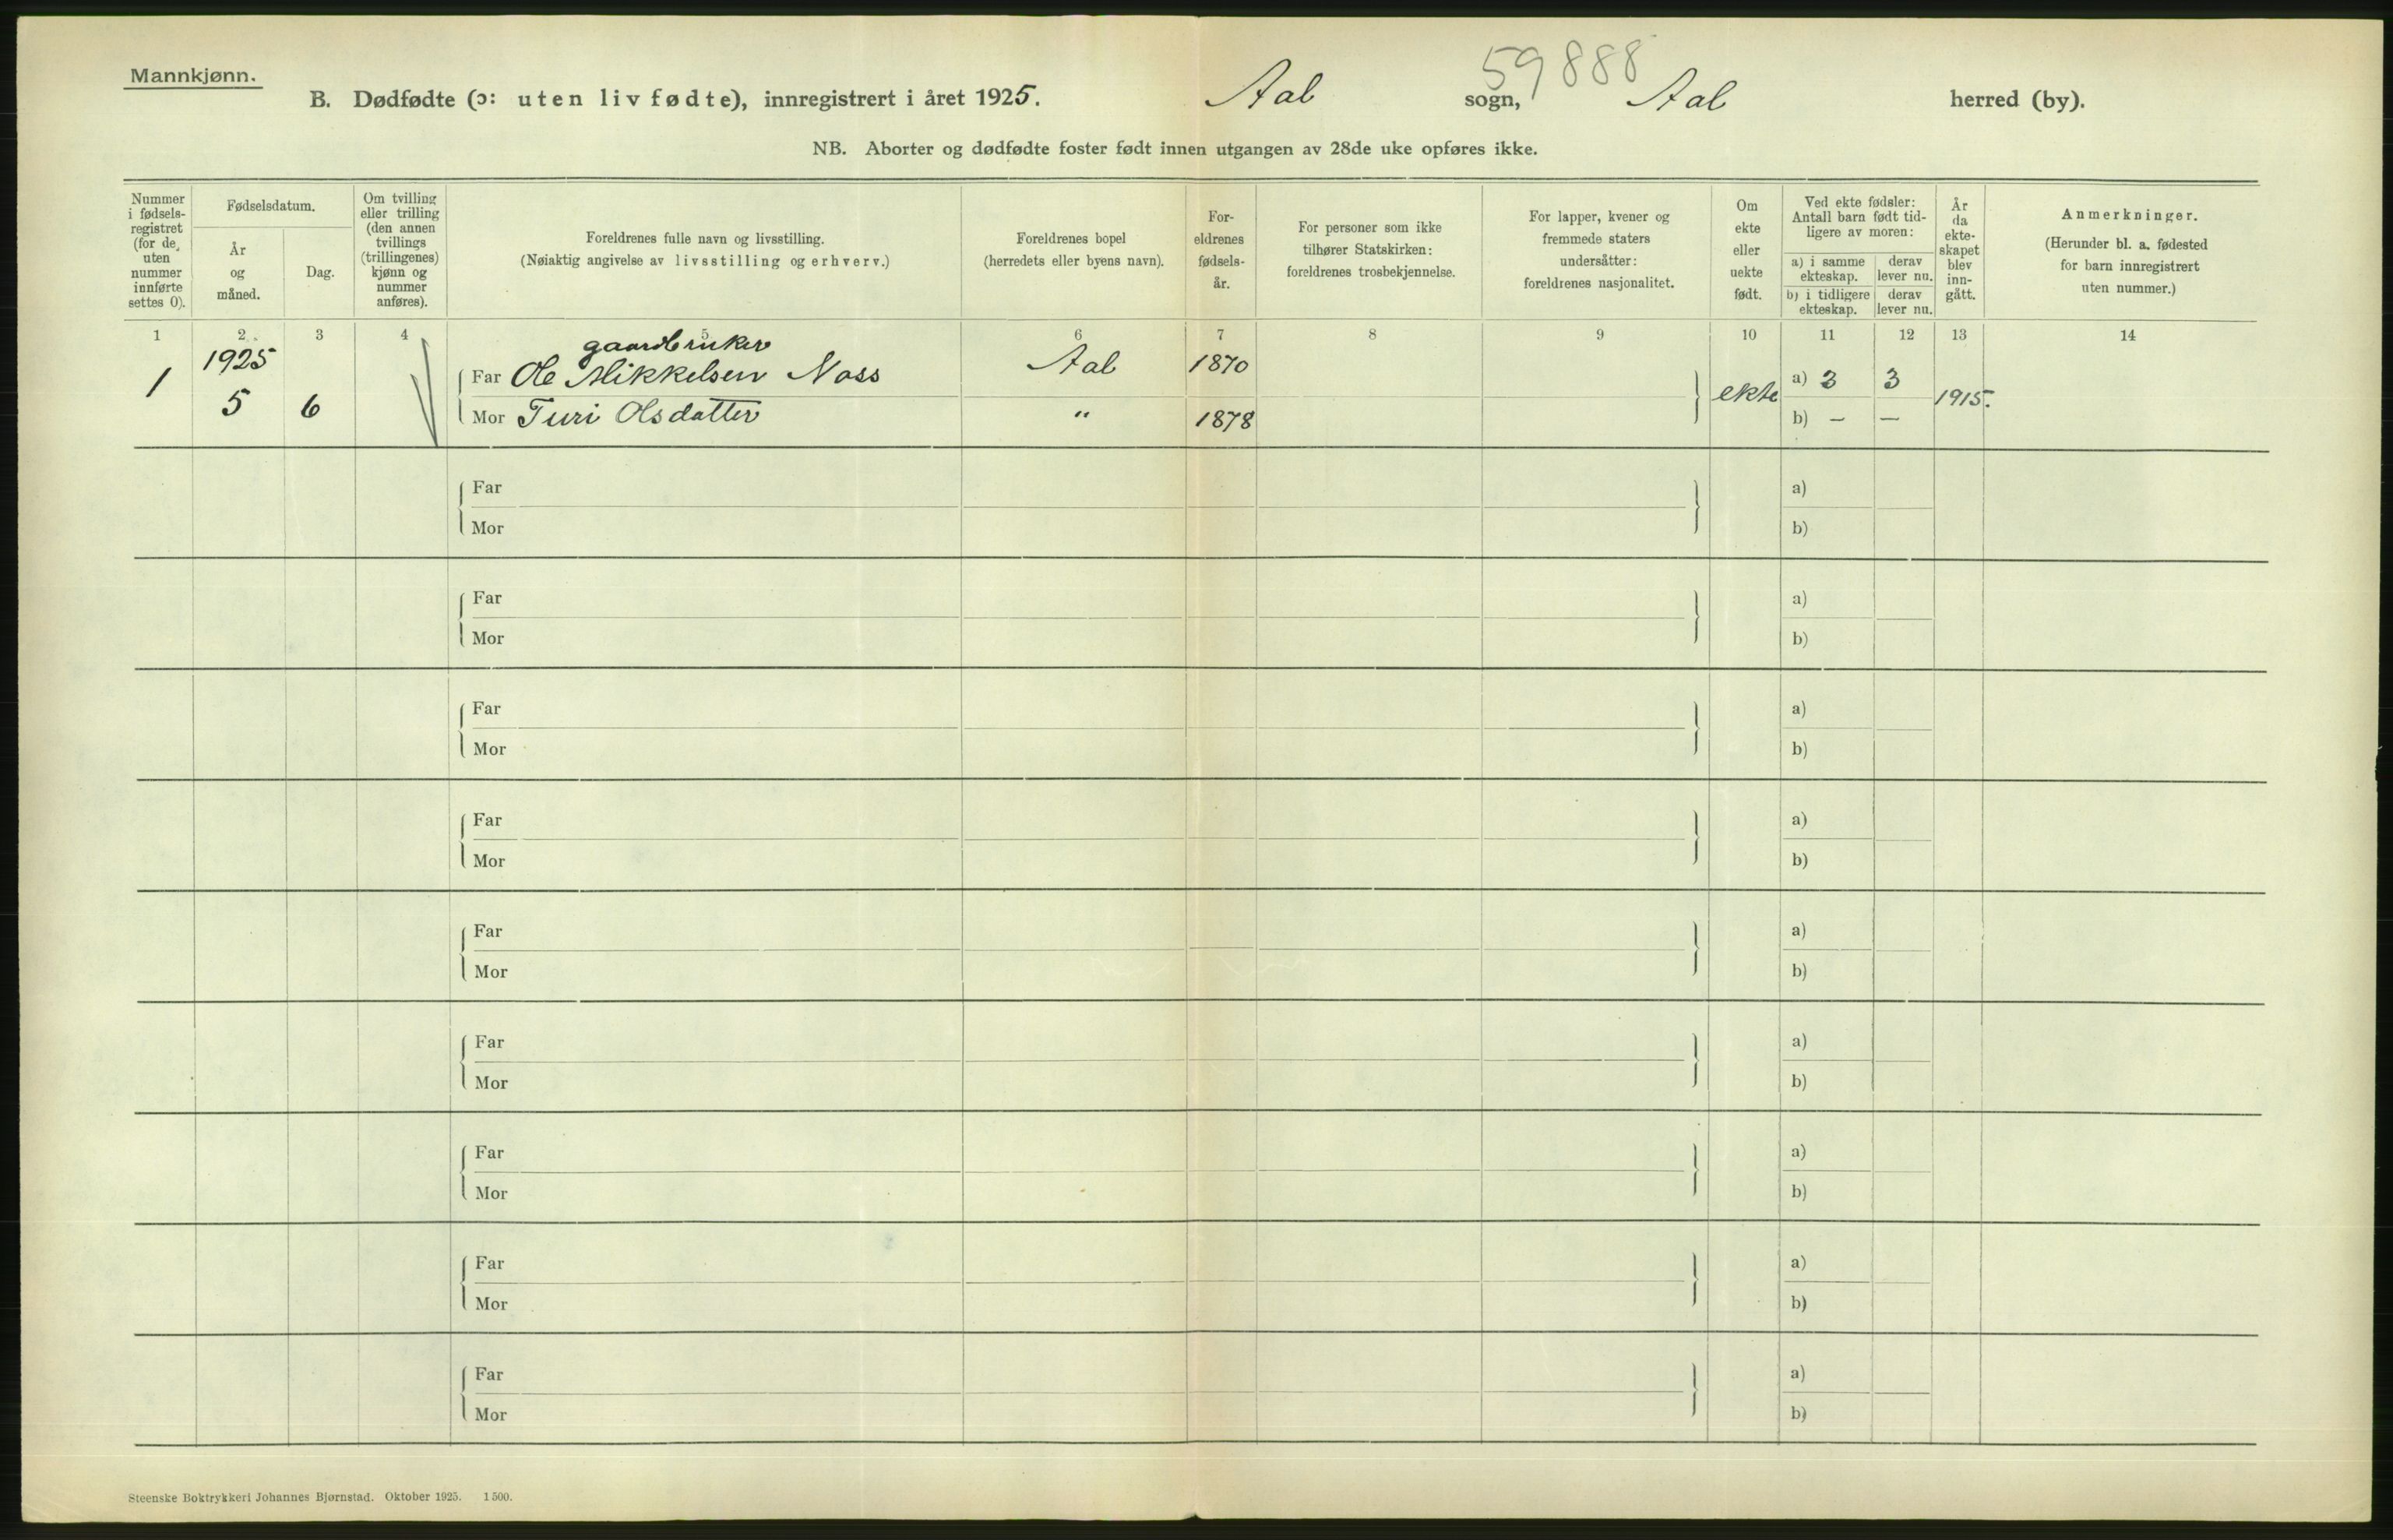 59888
Mannkjønn.
B. Dødfødte (ɔ: uten liv fødte), innregistrert i året 1925. Aal sogn, Aal herred (by).
NB. Aborter og dødfødte foster født innen utgangen av 28de uke opføres ikke.
Nummer
i fødsels-
registret
(for de
uten
nummer
innførte
settes 0).
Fødselsdatum.
År
og
måned.
Dag.
Om tvilling
eller trilling
(den annen
tvillings
(trillingenes)
kjønn og
nummer
anføres).
Foreldrenes fulle navn og livsstilling.
(Nøiaktig angivelse av livsstilling og erhverv.)
Foreldrenes bopel
(herredets eller byens navn).
For-
eldrenes
fødsels-
år.
For personer som ikke
tilhører Statskirken:
foreldrenes trosbekjennelse.
For lapper, kvener og
fremmede staters
undersåtter:
foreldrenes nasjonalitet.
Om
ekte
eller
uekte
født.
Ved ekte fødsler:
Antall barn født tid-
ligere av moren:
a) i samme
ekteskap.
derav
lever nu.
b) i tidligere
ekteskap.
derav
lever nu.
År
da
ekte-
skapet
blev
inn-
gått.
Anmerkninger.
(Herunder bl. a. fødested
for barn innregistrert
uten nummer.)
1 2 3 4 5 6 7 8 9 10 11 12 13 14
1925 gaardbruker
1 Far Ole Mikkelsen Noss Aal 1870 ekte a) 3 3 1915.
5 6 Mor Turi Olsdatter " 1878 b) – –
Far a)
Mor b)
Far a)
Mor b)
Far a)
Mor b)
Far a)
Mor b)
Far a)
Mor b)
Far a)
Mor b)
Far a)
Mor b)
Far a)
Mor b)
Far a)
Mor b)
Steenske Boktrykkeri Johannes Bjørnstad. Oktober 1925. 1500.